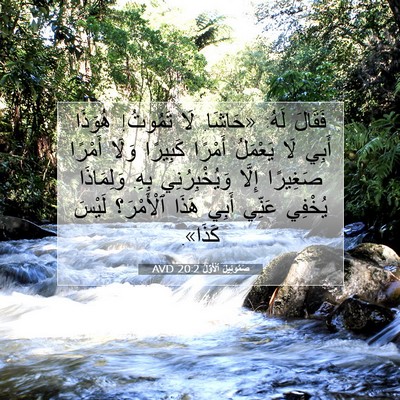 فَقَالَ لَهُ: «حَاشَا. لَا تَمُوتُ! هُوَذَا
أَبِي لَا يَعْمَلُ أَمْرًا كَبِيرًا وَلَا أَمْرًا
صَغِيرًا إِلَّا وَيُخْبِرُنِي بِهِ. وَلِمَاذَا
يُخْفِي عَنِّي أَبِي هَذَا ٱلْأَمْرَ؟ لَيْسَ
كَذَا».
صَمُوئِيلَ ٱلْأَوَّلُ 20:2 AVD